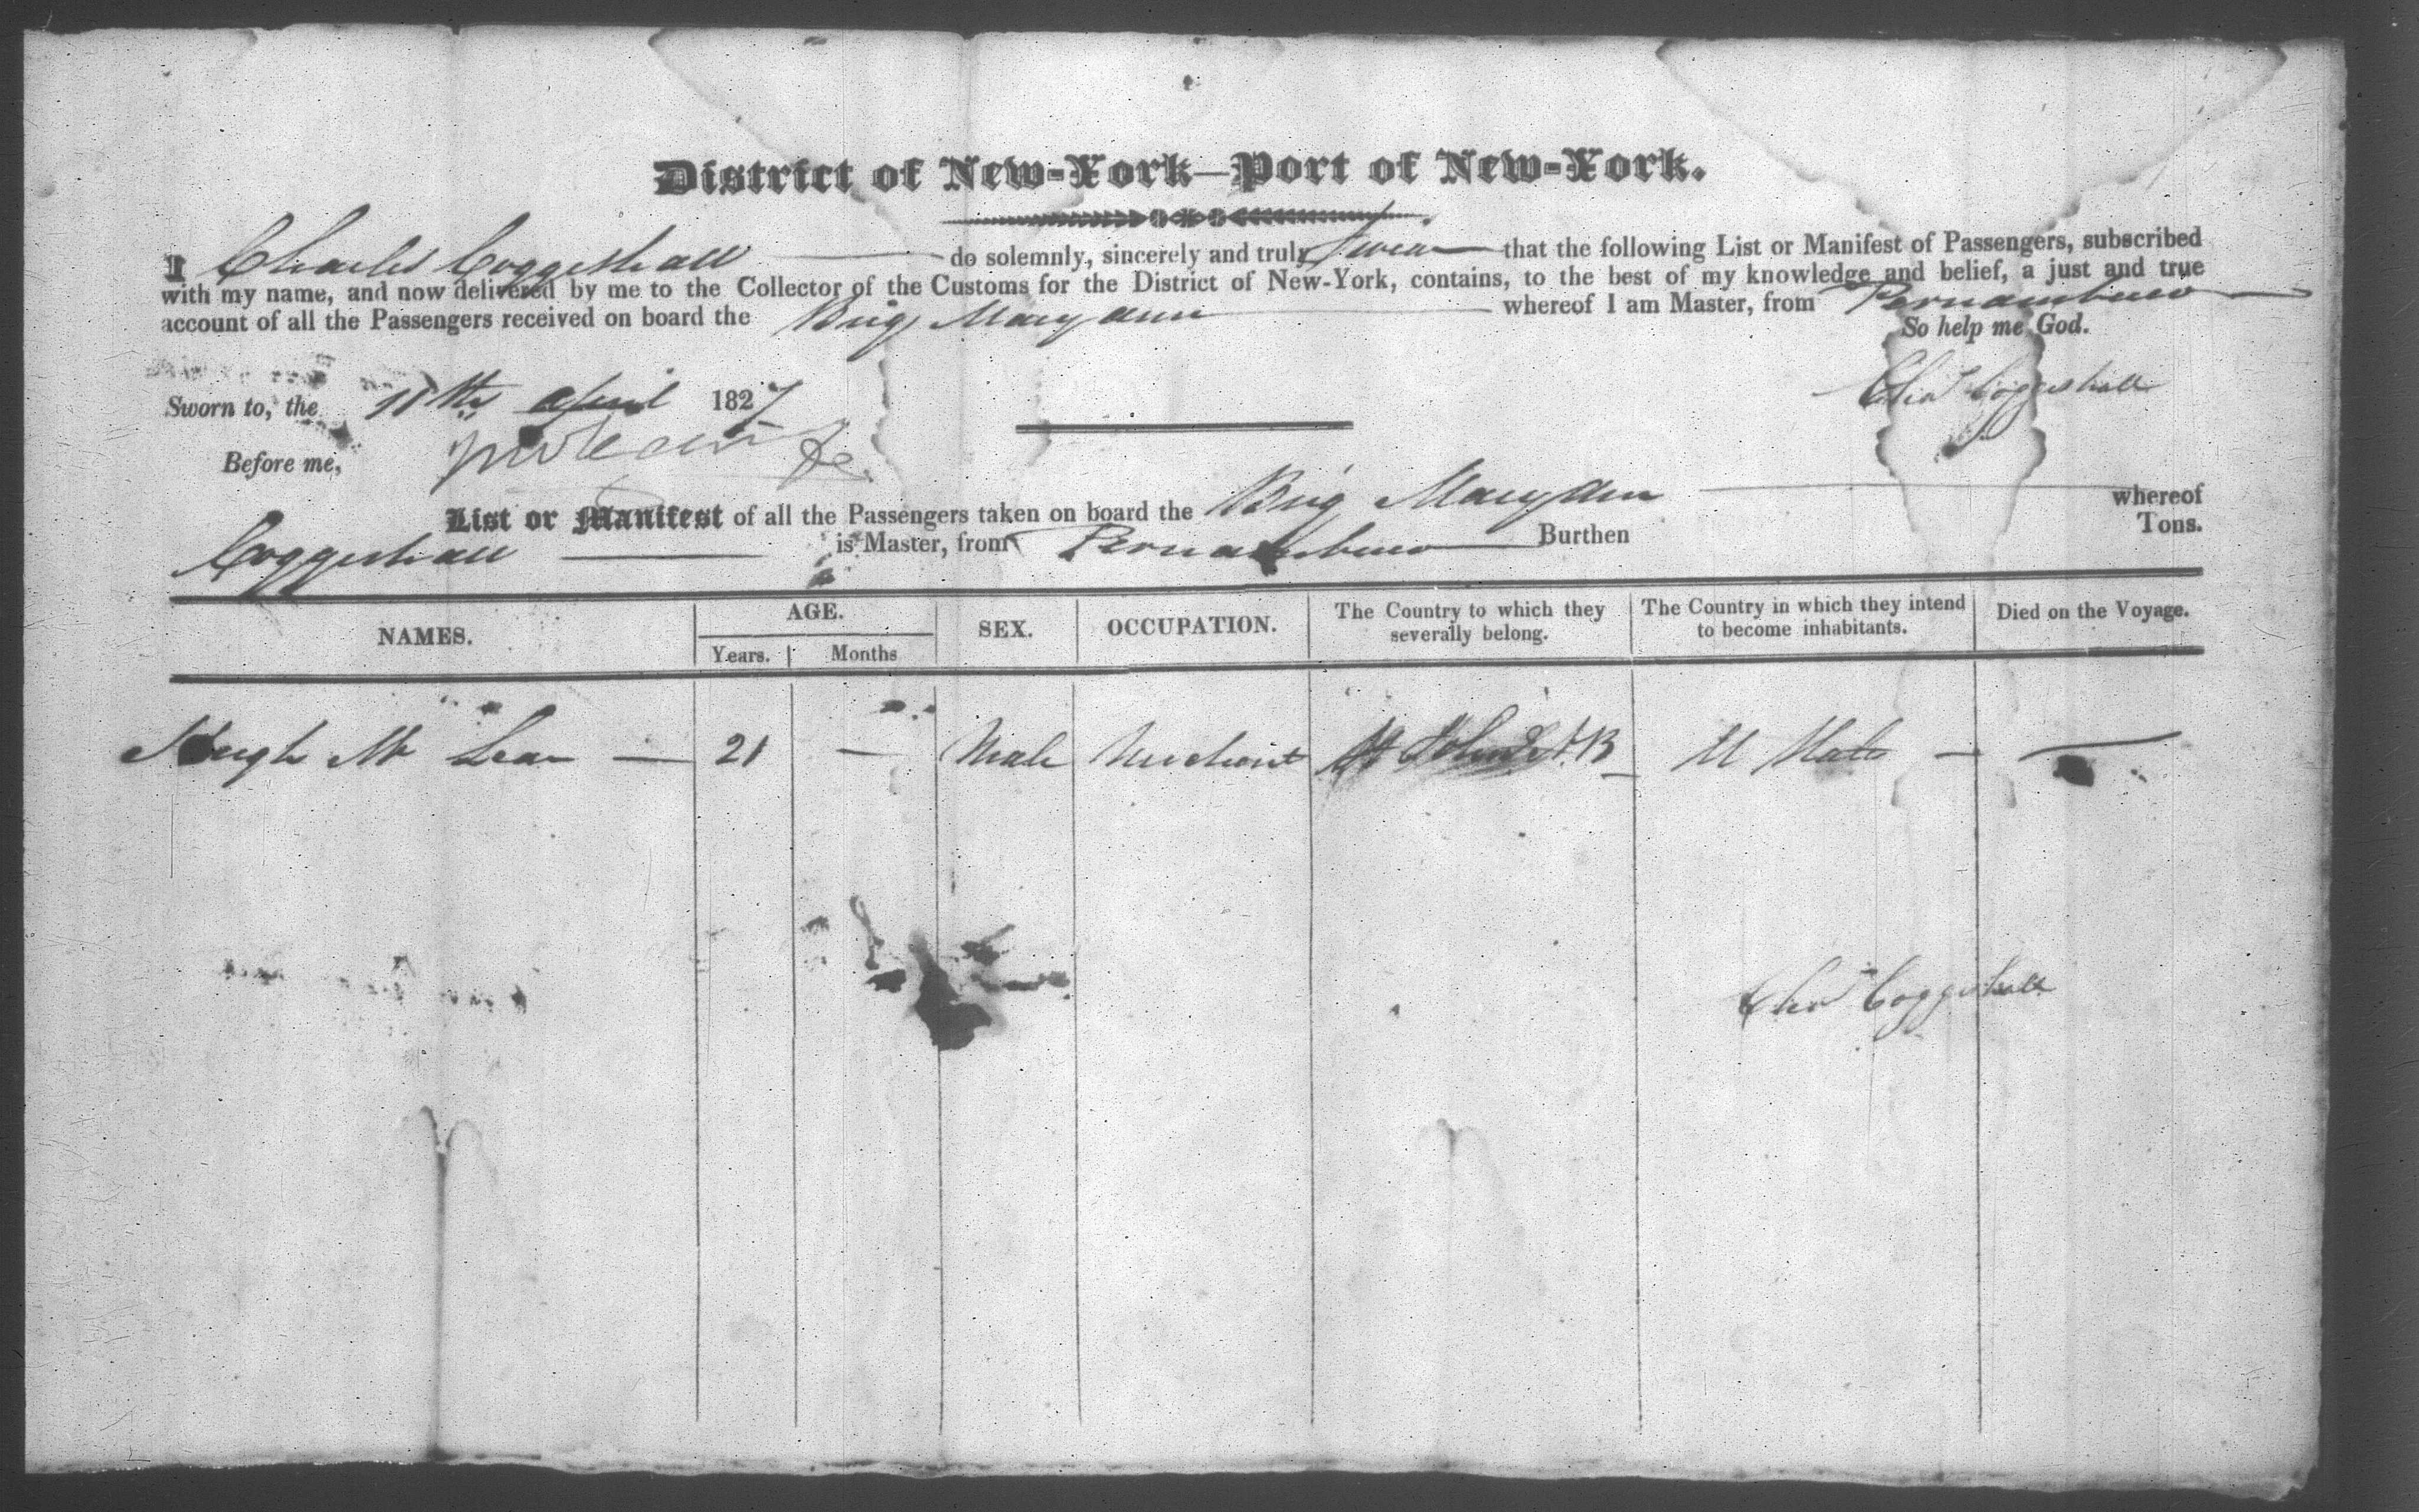 District of New-York—Port of New-York.
I Charles Coggeshall do solemnly, sincerely and truly swear that the following List or Manifest of Passengers, subscribed
with my name, and now delivered by me to the Collector of the Customs for the District of New-York, contains, to the best of my knowledge and belief, a just and true
account of all the Passengers received on board the Brig Mary Ann whereof I am Master, from Pernambuco
So help me God.
Sworn to, the April 1827 Chas Coggeshall
Before me,
List or Manifest of all the Passengers taken on board the Brig Mary Ann whereof
Coggeshall is Master, from Pernambuco Burthen Tons.
NAMES. AGE. Years. Months SEX. OCCUPATION. The Country to which they severally belong. The Country in which they intend to become inhabitants. Died on the Voyage.
Hugh Mc Lean — 21 — Male Merchant St Johns N.B — U States — —
Chas Coggeshall